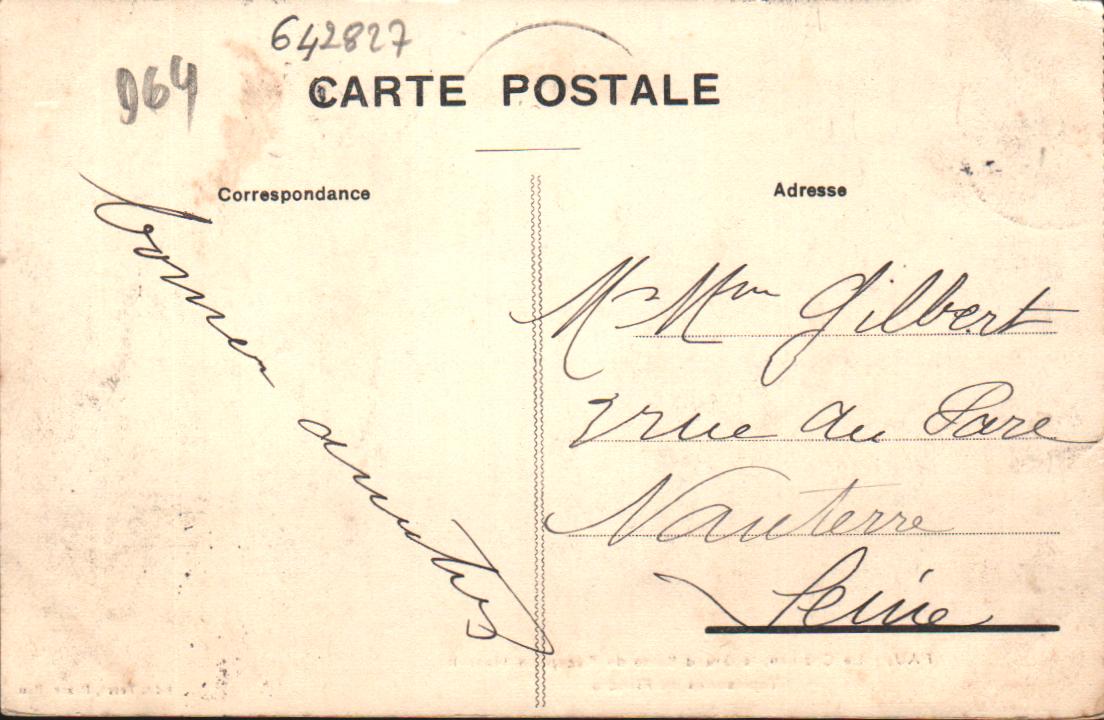 642827
D64
CARTE POSTALE
Correspondance
Adresse
bonnes amitiés
Mr Mme Gilbert
rue du Parc
Nanterre
Seine